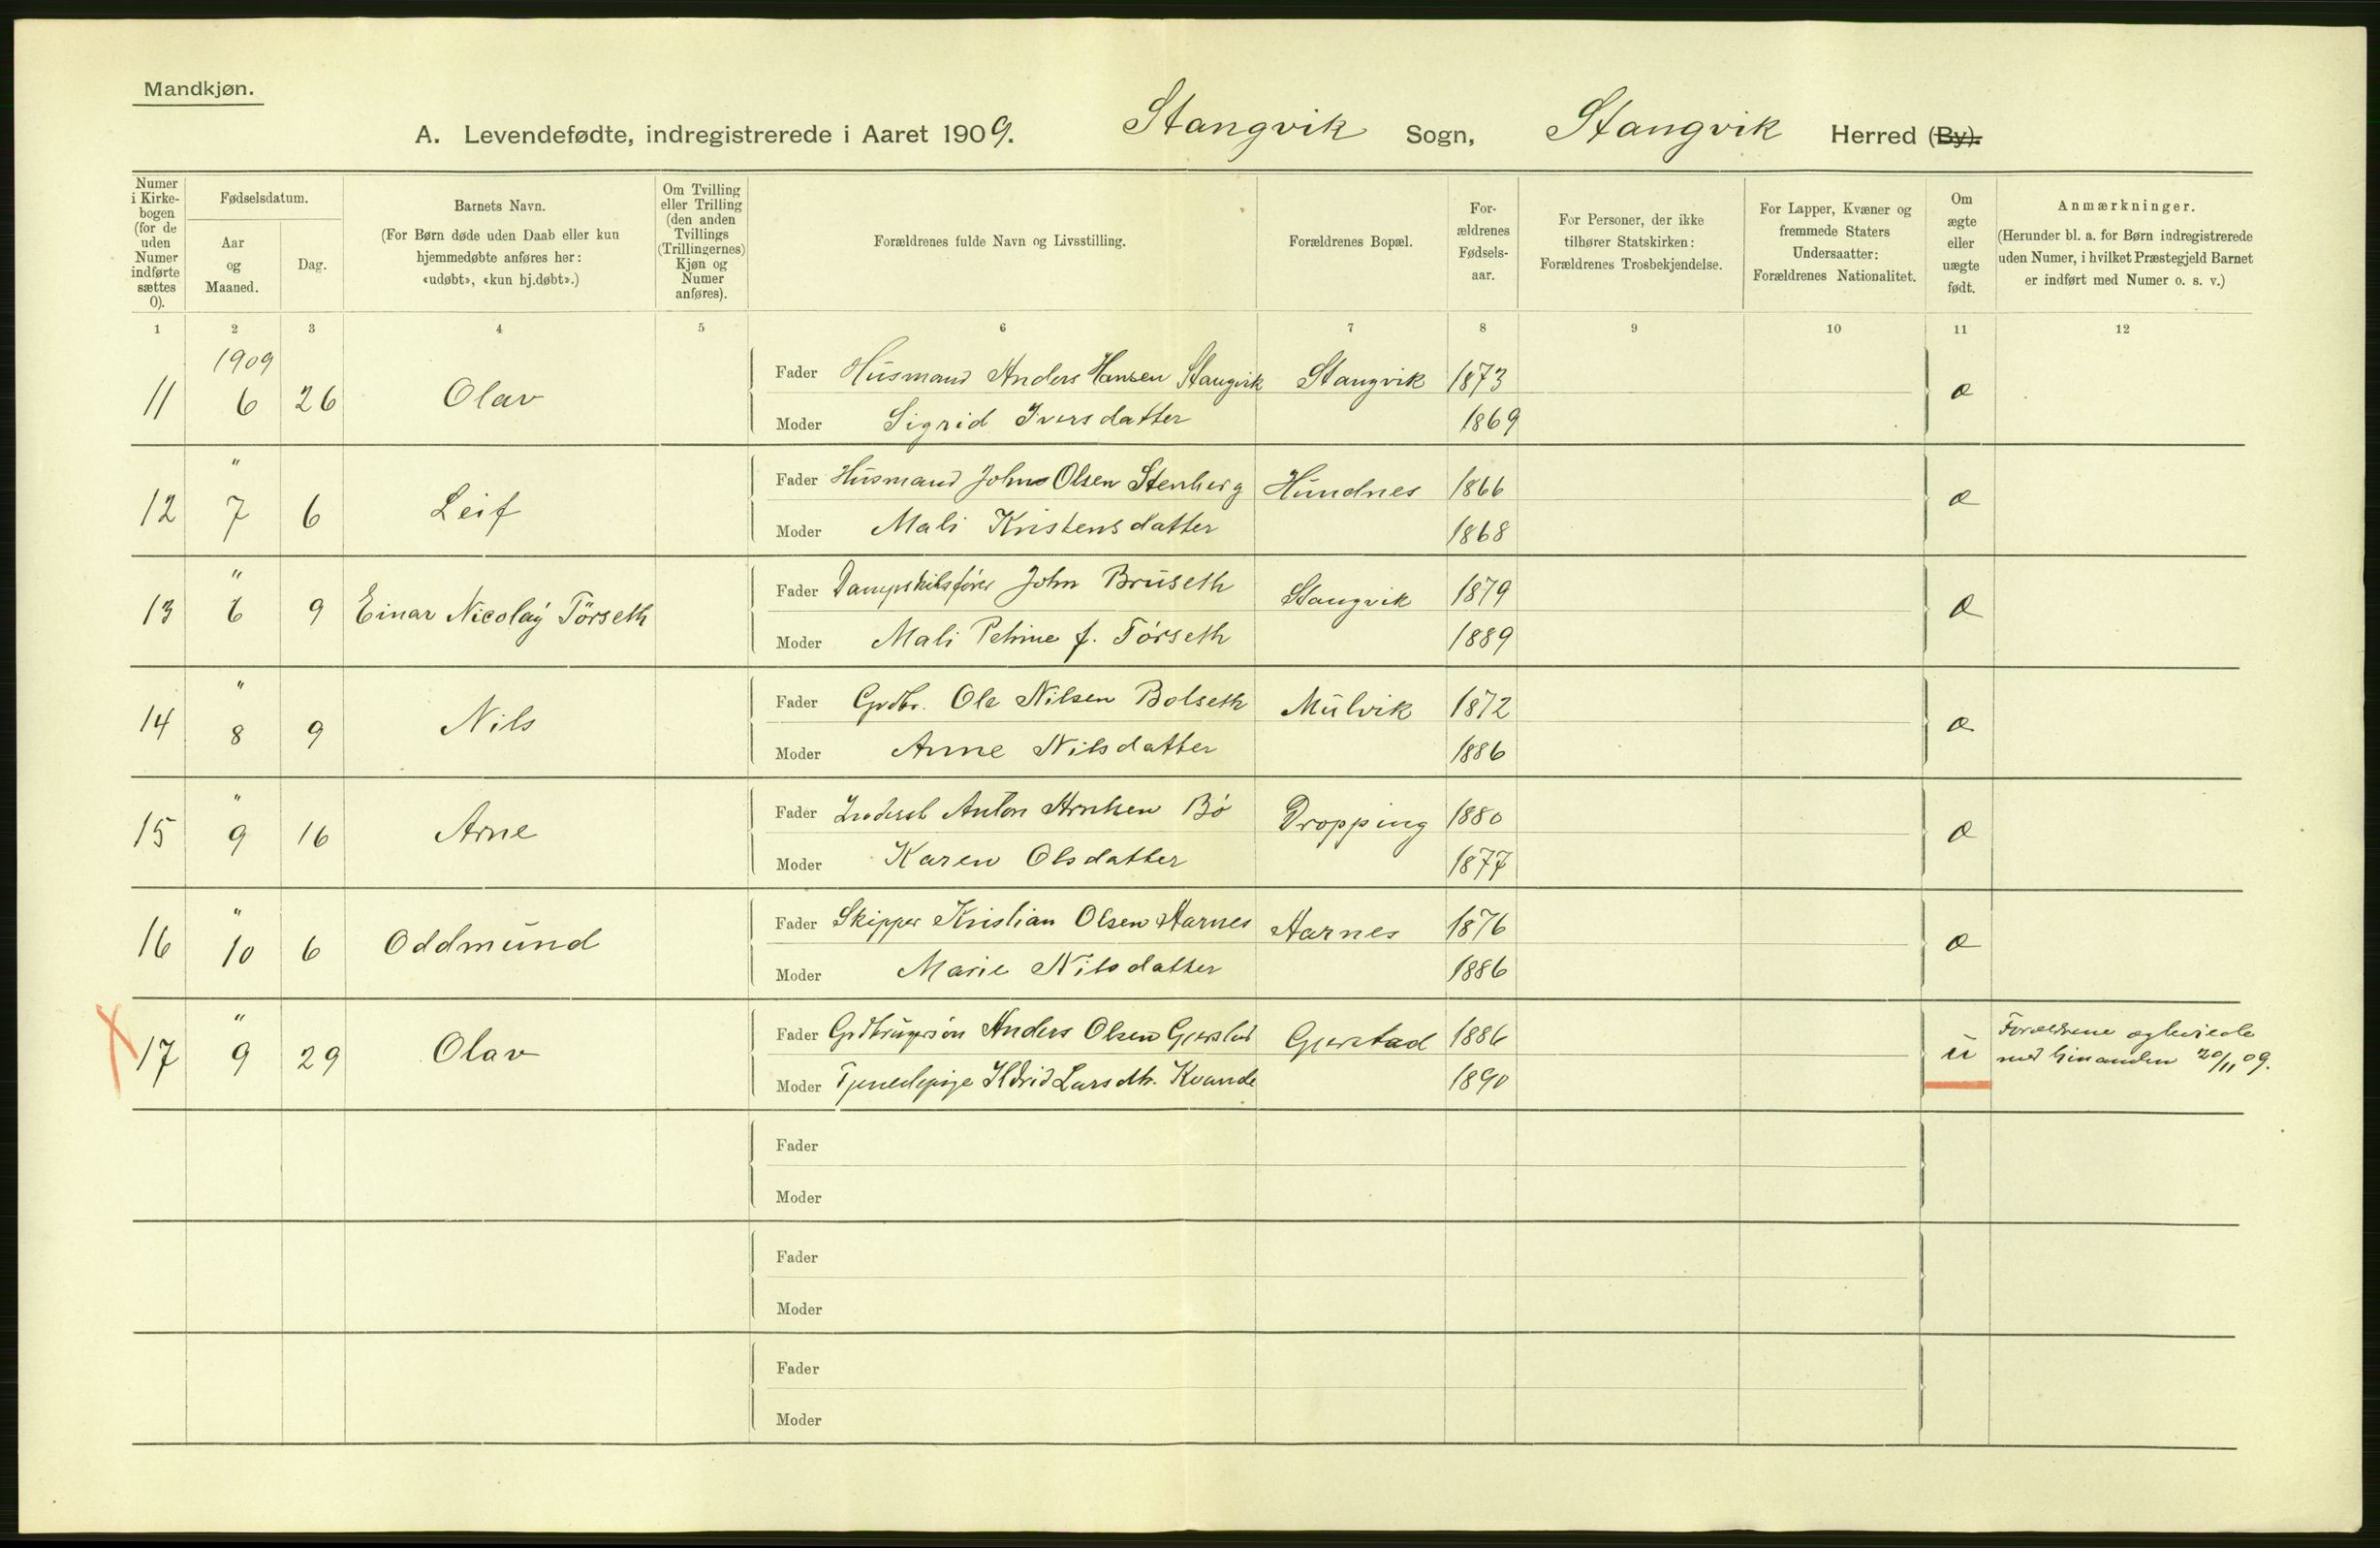 Mandkjøn.
A. Levendefødte, indregistrerede i Aaret 1909. Stangvik Sogn, Stangvik Herred (By).
Numer i Kirkebogen (for de uden Numer indførte sættes 0).
Fødselsdatum.
Aar og Maaned.
Dag.
Barnets Navn.
(For Børn døde uden Daab eller kun hjemmedøbte anføres her: «udøbt», «kun hj.døbt».)
Om Tvilling eller Trilling (den anden Tvillings (Trillingernes) Kjøn og Numer anføres).
Forældrenes fulde Navn og Livsstilling.
Forældrenes Bopæl.
Forældrenes Fødselsaar.
For Personer, der ikke tilhører Statskirken: Forældrenes Trosbekjendelse.
For Lapper, Kvæner og fremmede Staters Undersaatter: Forældrenes Nationalitet.
Om ægte eller uægte født.
Anmærkninger.
(Herunder bl. a. for Børn indregistrerede uden Numer, i hvilket Præstegjeld Barnet er indført med Numer o. s. v.)
1 2 3 4 5 6 7 8 9 10 11 12
1909
11 6 26 Olav Fader Husmand Anders Hansen Stangvik Stangvik 1873 æ
Moder Sigrid Iversdatter 1869
"
12 7 6 Leif Fader Husmand John Olsen Stenberg Hundnes 1866 æ
Moder Mali Kristensdatter 1868
"
13 6 9 Einar Nicolay Törseth Fader Dampskibsfører John Bruseth Stangvik 1879 æ
Moder Mali Petrine f. Tórseth 1889
"
14 8 9 Nils Fader Grdbr. Ole Nilsen Bolseth Mulvik 1872 æ
Moder Anne Nilsdatter 1886
"
15 9 16 Arne Fader Anton Arntsen Bø Dropping 1880 æ
Moder Karen Olsdatter 1877
"
16 10 6 Oddmund Fader Skipper Kristian Olsen Aarnes Aarnes 1876 æ
Moder Marie Nilsdatter 1886
"
17 9 29 Olav Fader Grdbrugersøn Anders Olsen Gjerstad Gjerstad 1886 u Forældrene egteviede
Moder Tjenestepige Ildrid Larsdtr. Kvande 1890 med hinanden 20/11 09.
Fader
Moder
Fader
Moder
Fader
Moder